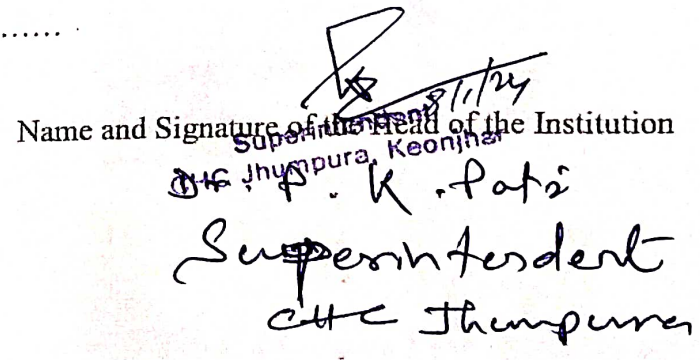 ........
8/1/24
Name and Signature of the Head of the Institution
Superintendent
CHC Jhumpura, Keonjhar
Dr. P. K. Pati
Superintendent
CHC Jhumpura